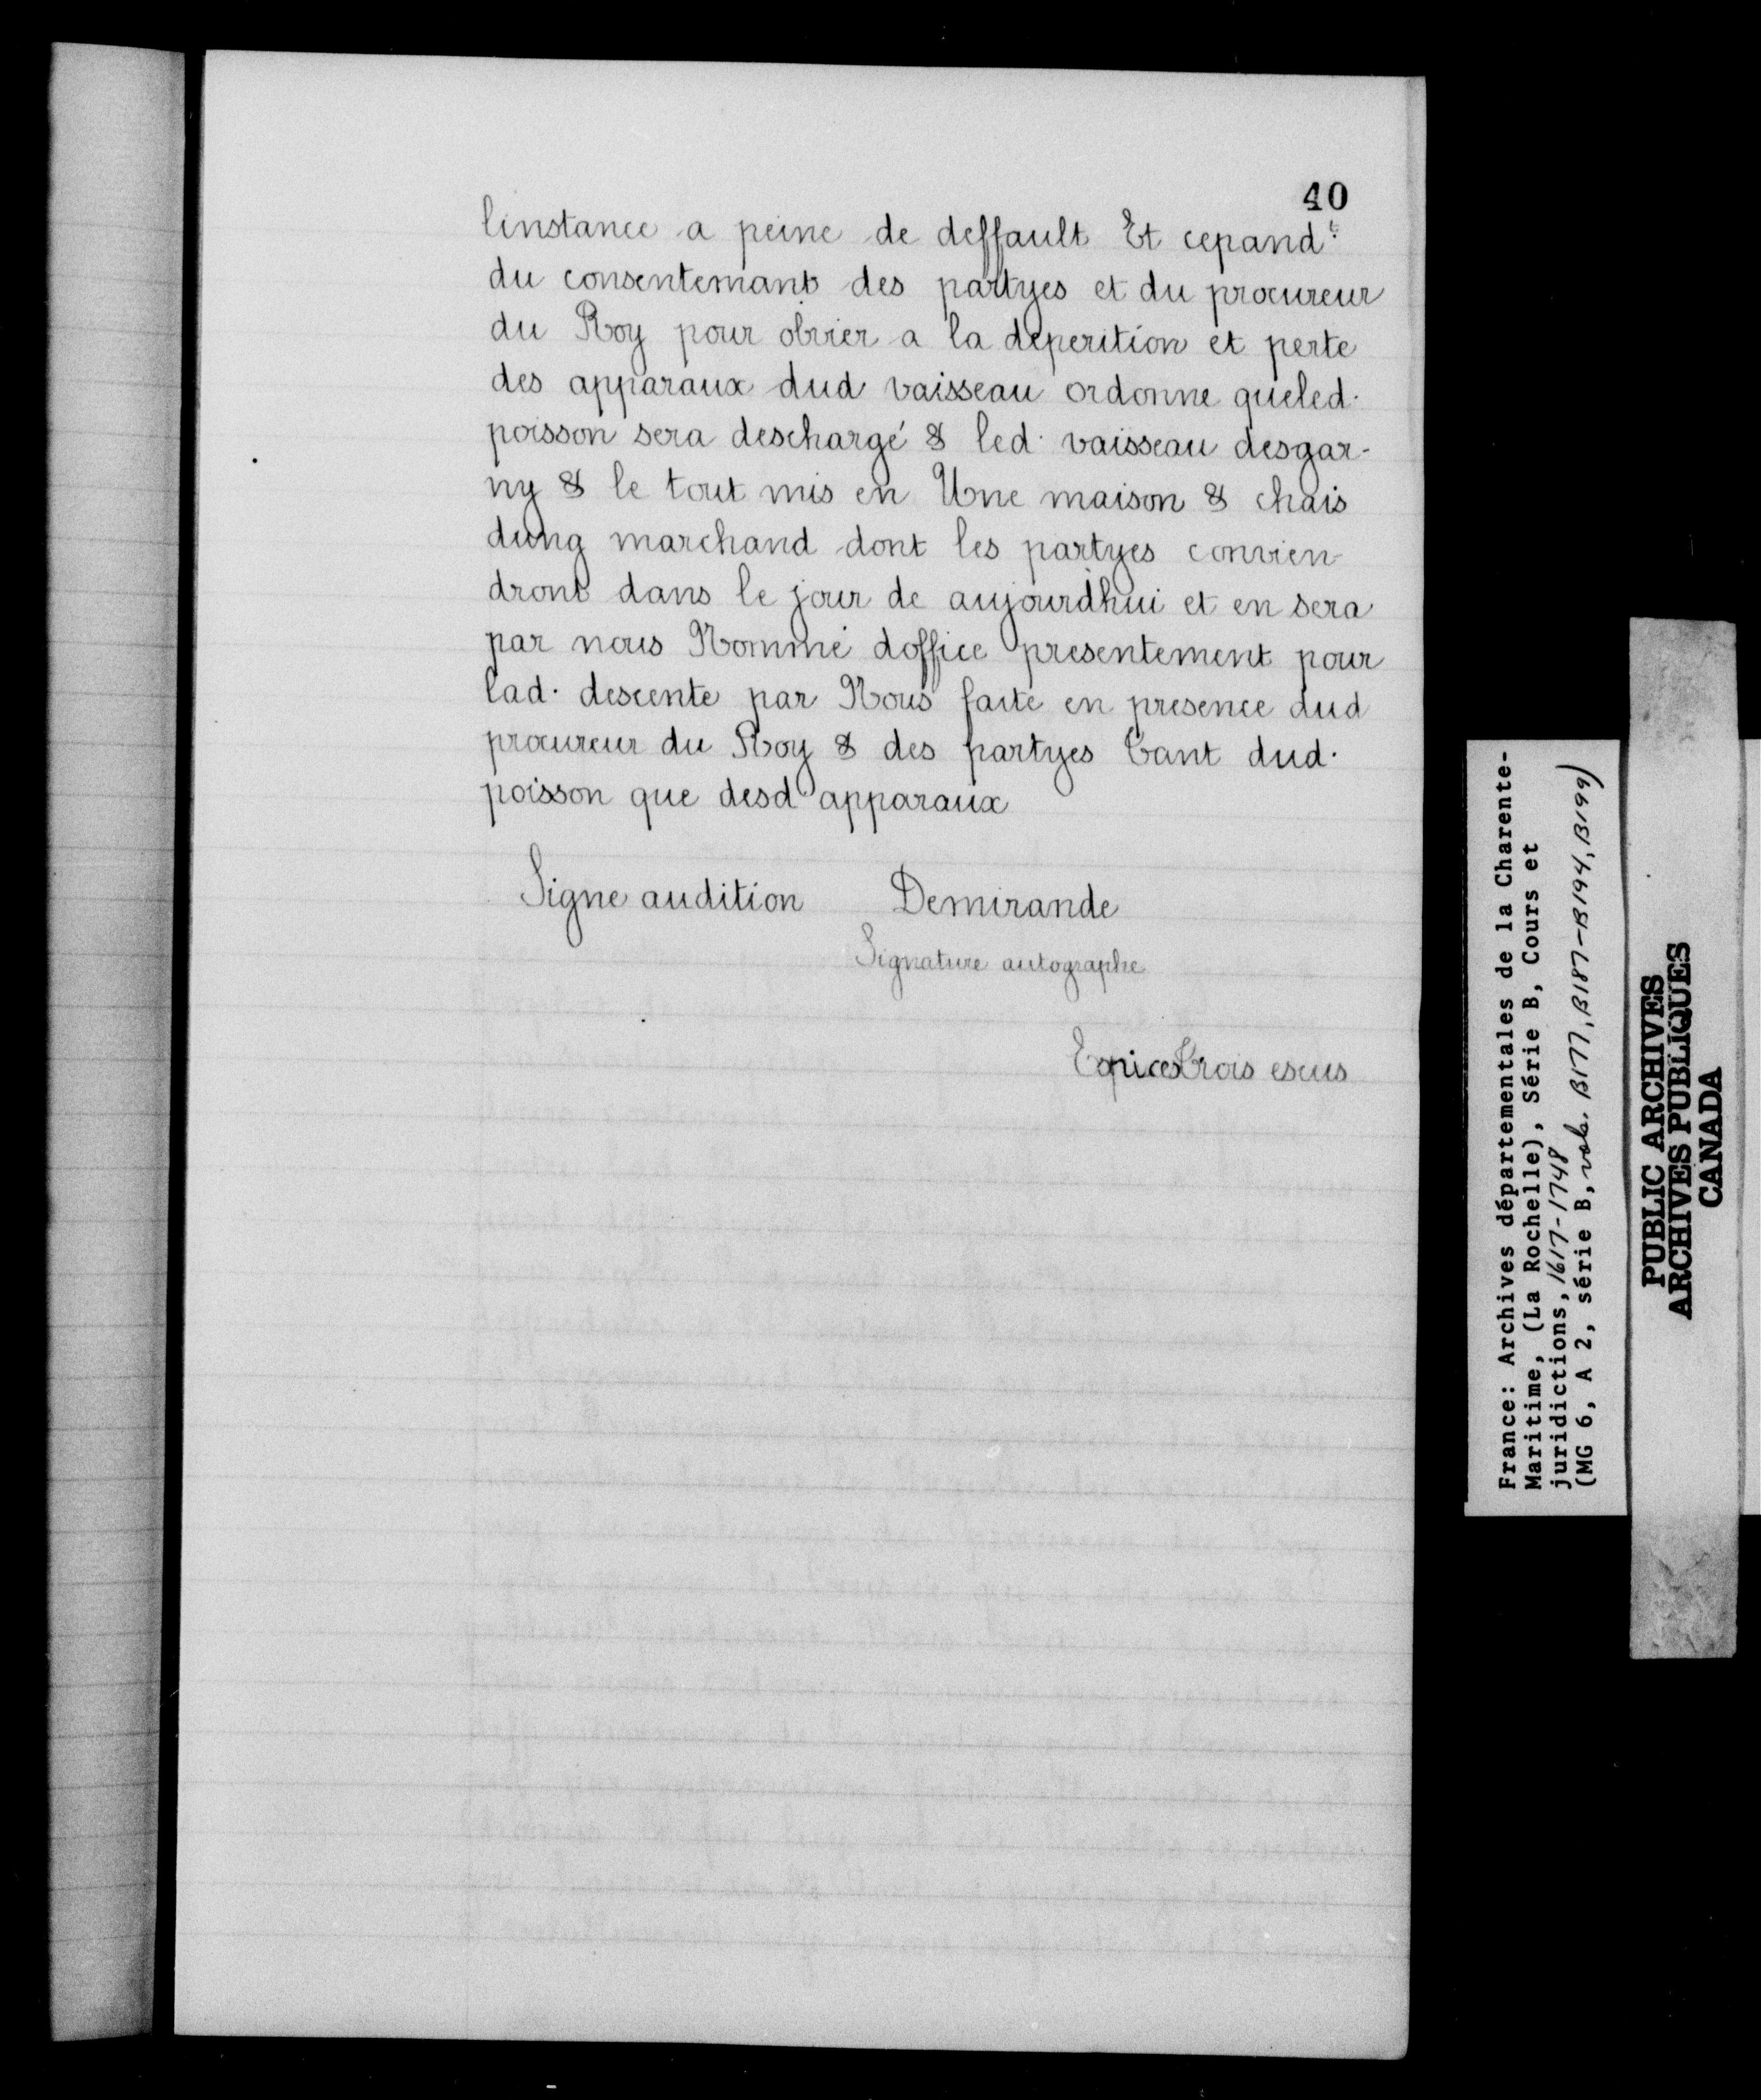 40
linstance a peine de deffault Et cepand.t
du consentemant des partyes et du procureur
du Roy pour obvier a la deperition et perte
des apparaux dud vaisseau ordonne queled.
poisson sera deschargé & led. vaisseau desgar-
ny & le tout mis en Une maison & chais
dung marchand dont les partyes convien
dront dans le jour de aujourdhui et en sera
par nous Nommé doffice presentement pour
lad. descente par Nous faite en presence dud
procureur du Roy & des partyes tant dud.
poisson que desd apparaux
Signe audition Demirande
Signature autographe
Epices trois escus
France: Archives départementales de la Charente-
Maritime, (La Rochelle), Série B, Cours et
juridictions, 1617-1748
(MG 6, A 2, série B, vols. B177, B187-B194, B199)
PUBLIC ARCHIVES
ARCHIVES PUBLIQUES
CANADA